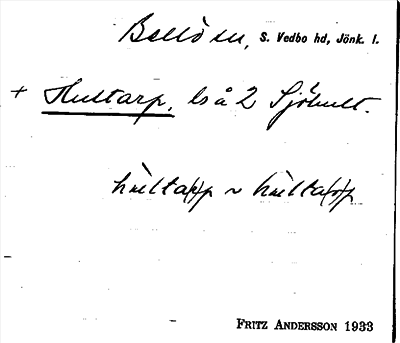 Bellö sn, S. Vedbo hd, Jönk. l.
+ Hultarp, ls å 2 Sjöhult.
hùltap ~ hùltarp
FRITZ ANDERSSON 1933